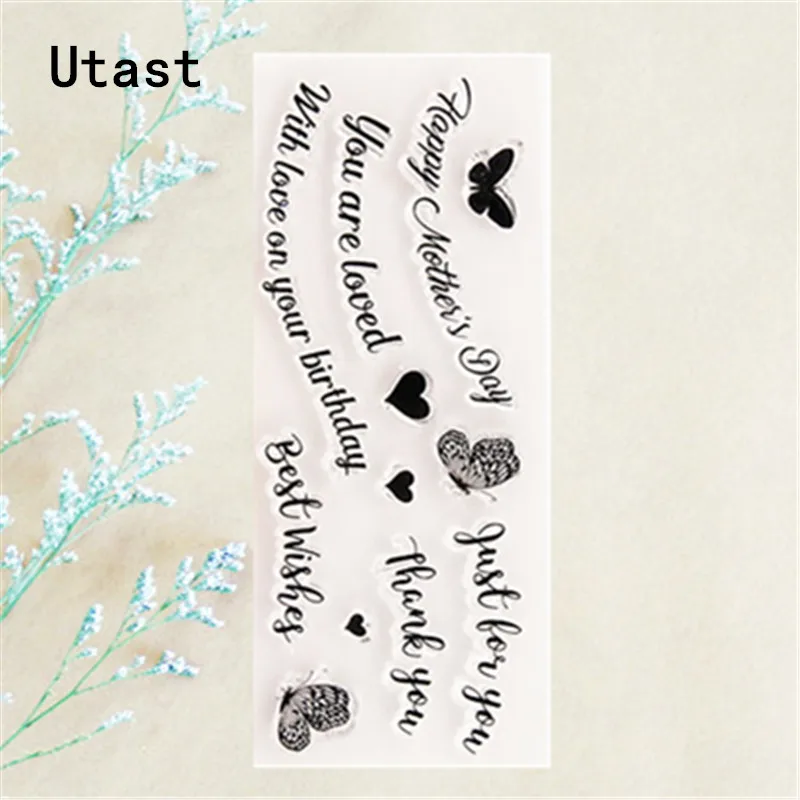 Utast
Happy Mother's Day
You are loved
With love on your birthday
Best Wishes
Thank you
Just for you